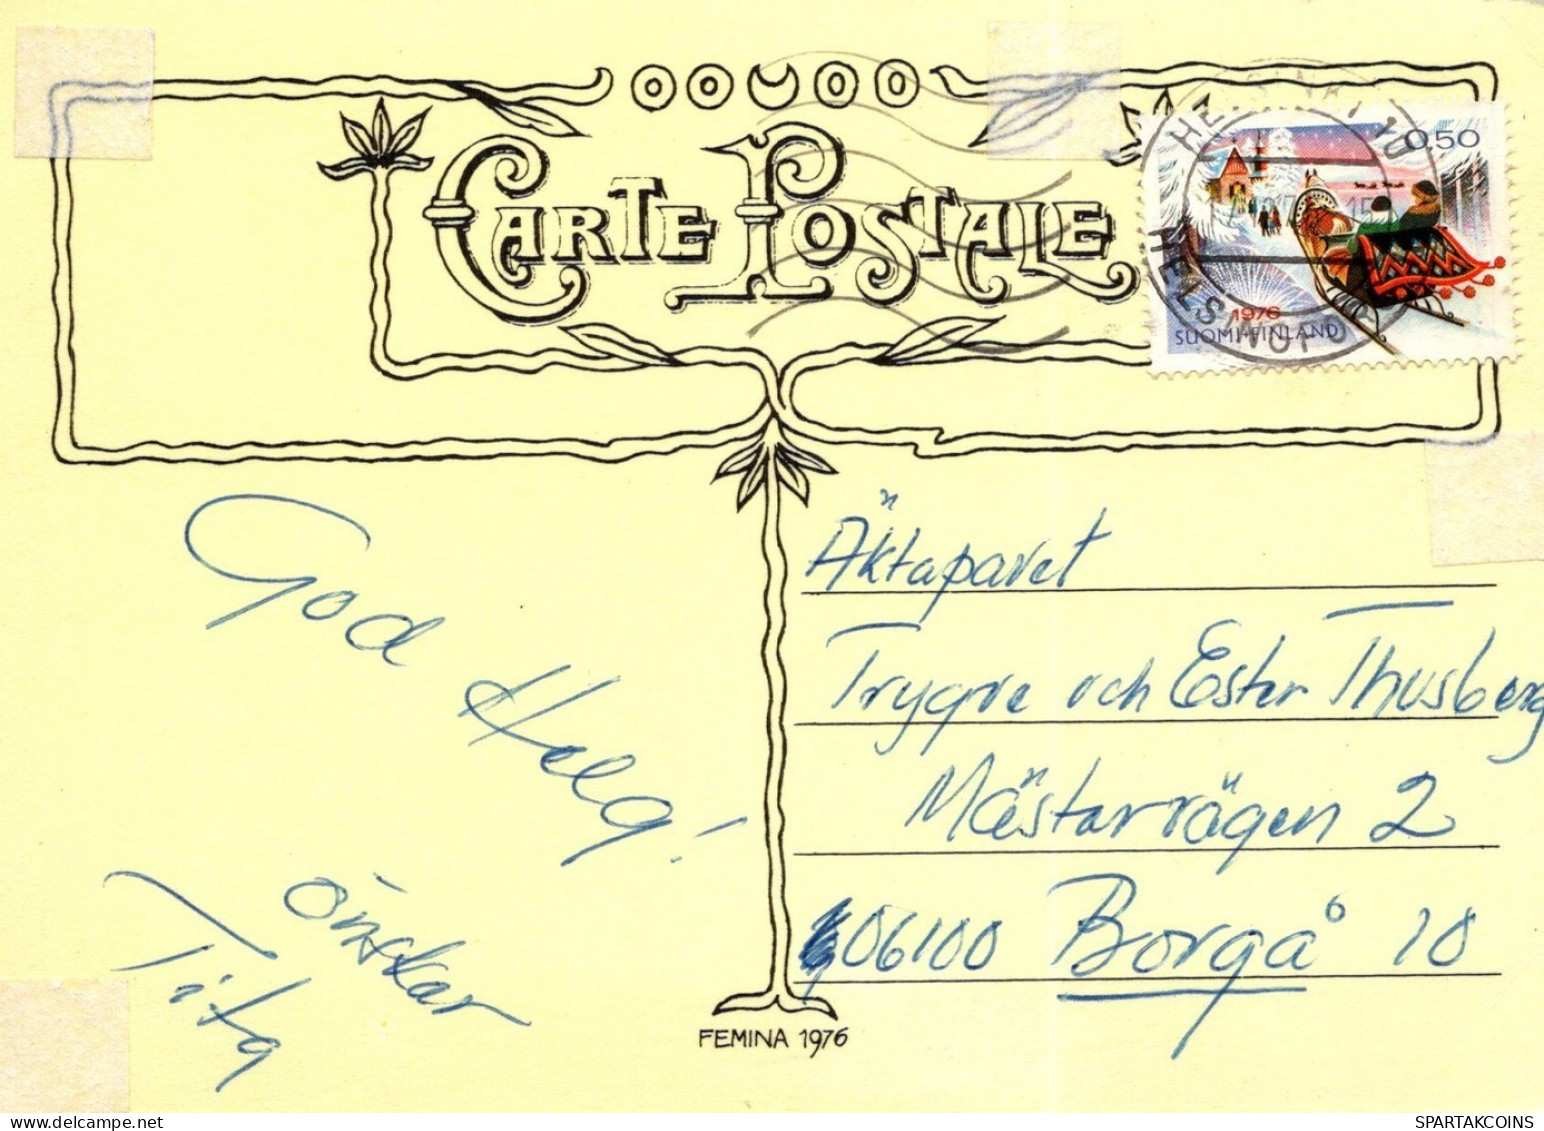 CARTE POSTALE
0,50
1976
SUOMI-FINLAND
HELSINKI 10
HELSINGFORS
God Helg!
önskar
Tita
Äktaparet
Trygve och Ester Thusberg
Mästarvägen 2
06100 Borgå 10
FEMINA 1976
SPARTAKCOINS